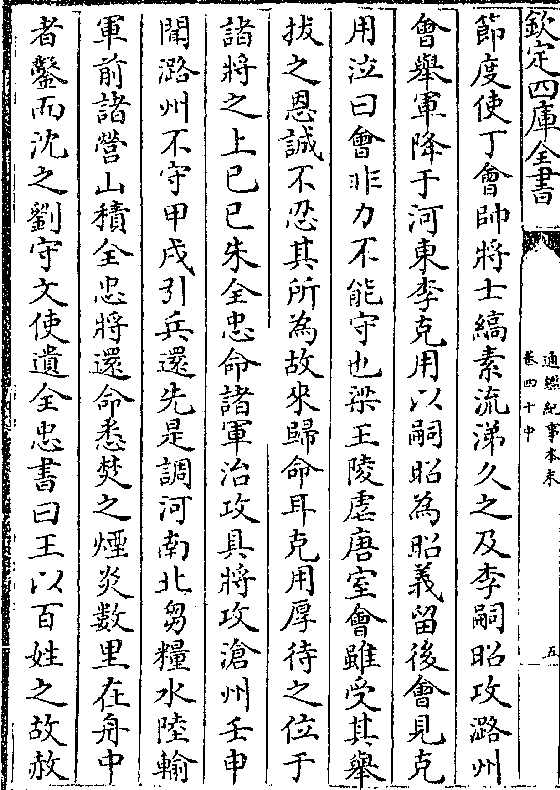 欽定四庫全書
通鑑紀事本末
卷四十中
五
節度使丁會帥將士縞素流涕久之及李嗣昭攻潞州
會舉軍降于河東李克用以嗣昭為昭義留後會見克
用泣曰會非力不能守也梁王陵虐唐室會雖受其舉
拔之恩誠不忍其所為故來歸命耳克用厚待之位于
諸將之上己巳朱全忠命諸軍治攻具將攻滄州壬申
聞潞州不守甲戌引兵還先是調河南北芻糧水陸輸
軍前諸營山積全忠將還命悉焚之煙炎數里在舟中
者鑿而沈之劉守文使遺全忠書曰王以百姓之故赦